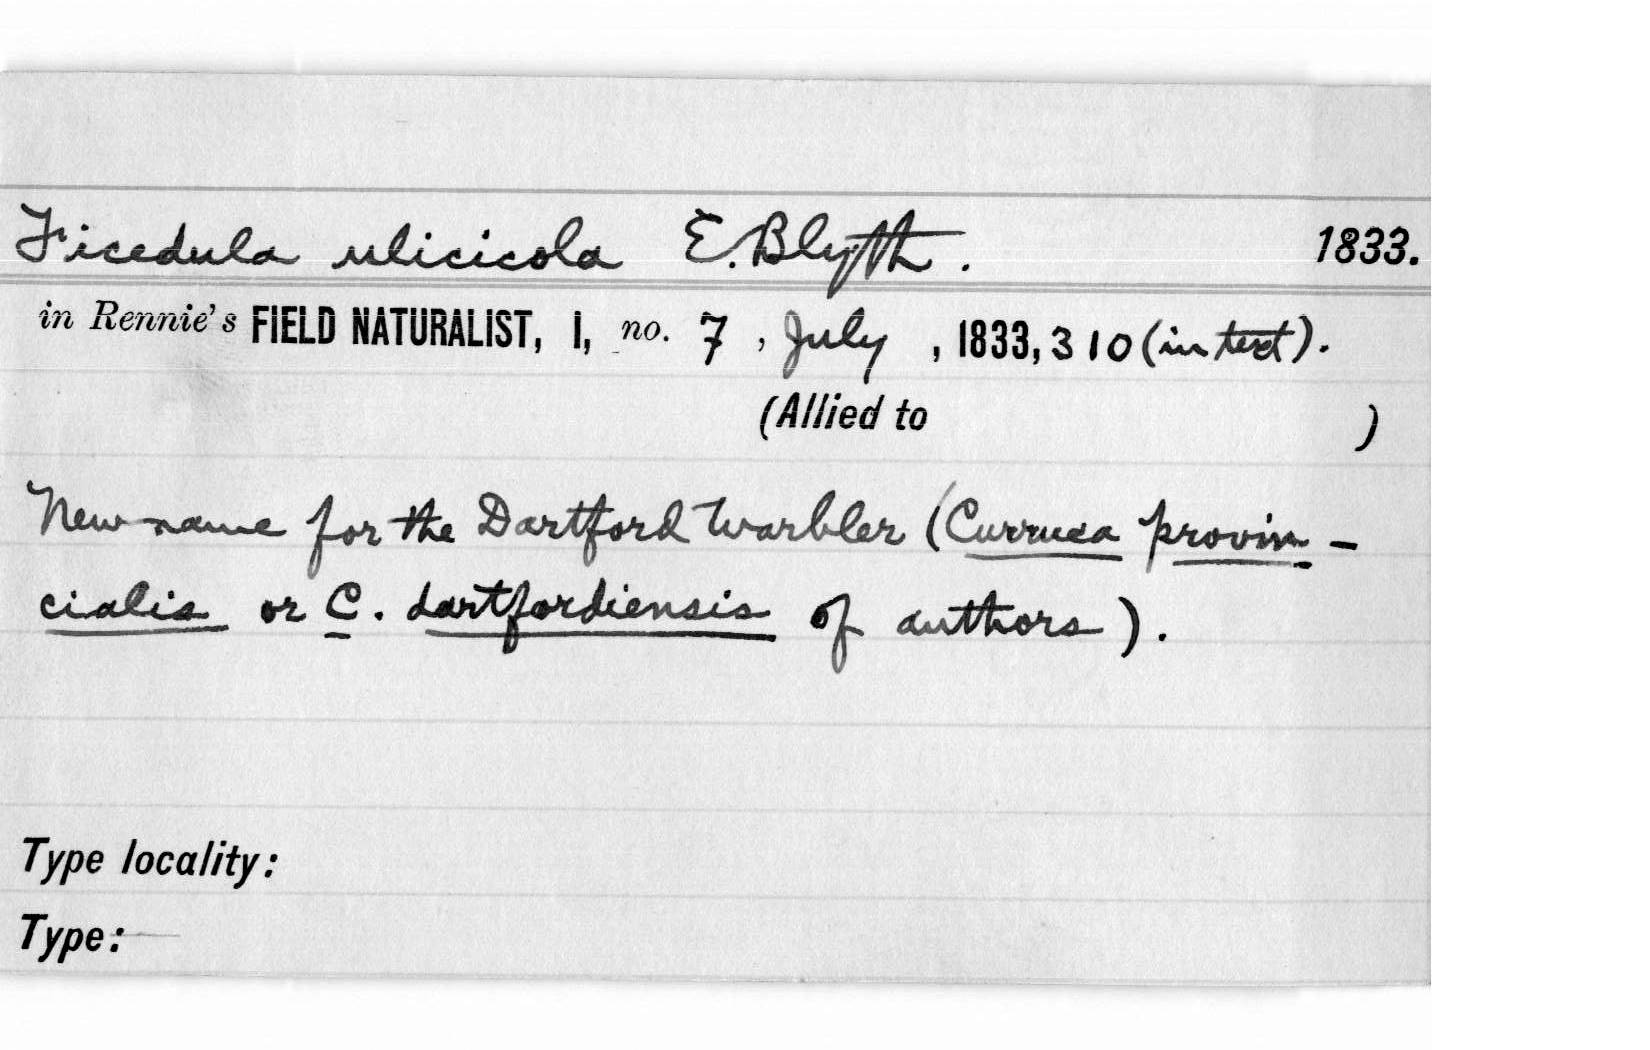 Ficedula ulicicola E. Blyth. 1833.
in Rennie's FIELD NATURALIST, I, no. 7, July, 1833, 310 (in text).
(Allied to )
New name for the Dartford Warbler (Curruca provin-
cialis or C. dartfordiensis of authors).
Type locality:
Type: